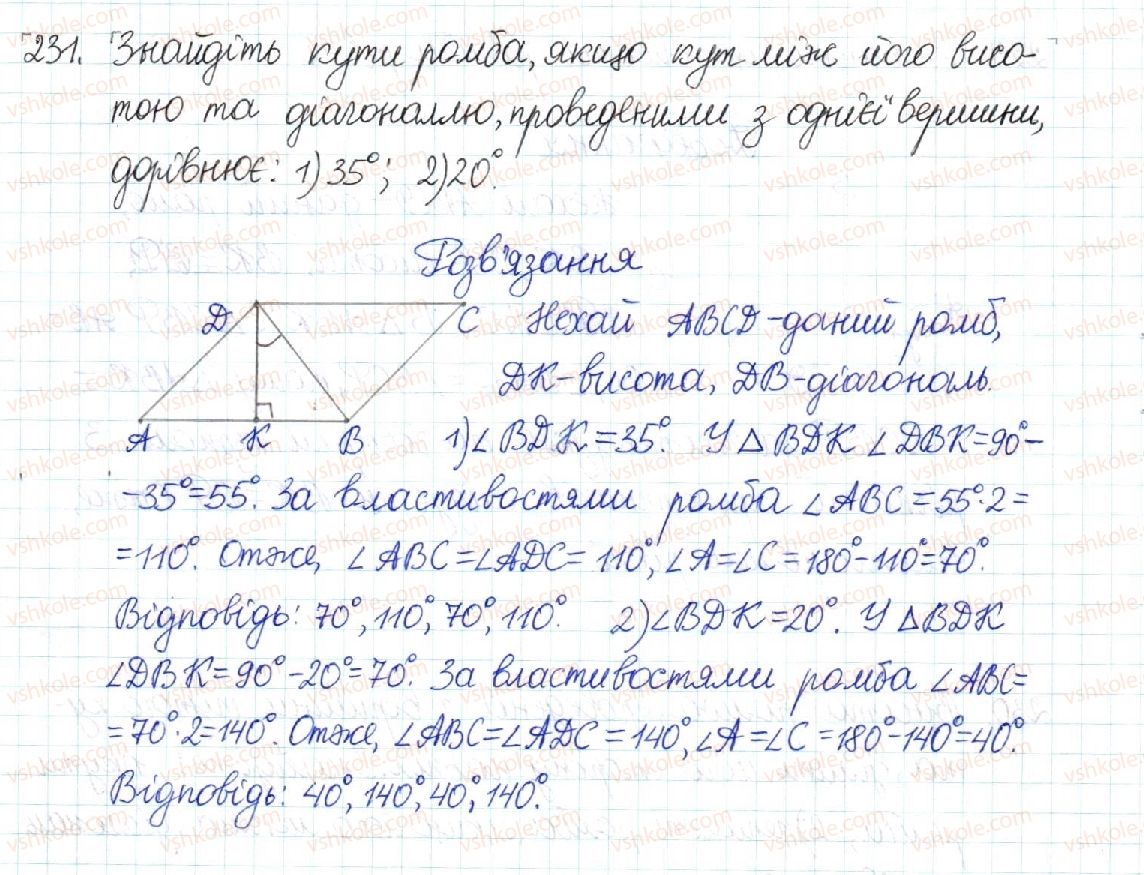 231. Знайдіть кути ромба, якщо кут між його висо-
тою та діагоналлю, проведеними з однієї вершини,
дорівнює: 1) 35°; 2) 20°.
Розв'язання
D C Нехай ABCD - даний ромб,
DK - висота, DB - діагональ.
A K B 1) ∠BDK = 35°. У △BDK ∠DBK = 90° -
- 35° = 55°. За властивостями ромба ∠ABC = 55° · 2 =
= 110°. Отже, ∠ABC = ∠ADC = 110°, ∠A = ∠C = 180° - 110° = 70°.
Відповідь: 70°, 110°, 70°, 110°. 2) ∠BDK = 20°. У △BDK
∠DBK = 90° - 20° = 70°. За властивостями ромба ∠ABC =
= 70° · 2 = 140°. Отже, ∠ABC = ∠ADC = 140°, ∠A = ∠C = 180° - 140° = 40°.
Відповідь: 40°, 140°, 40°, 140°.
vshkole.com